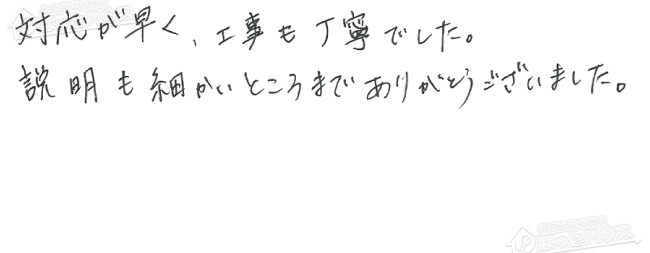 対応が早く、工事も丁寧でした。
説明も細かいところまでありがとうございました。